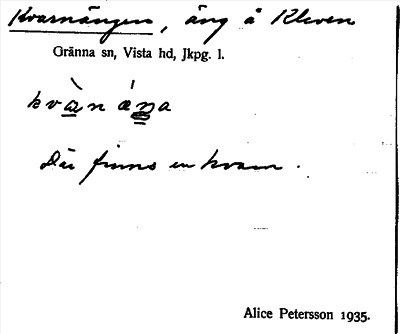 Kvarnängen, äng å Kleven
Gränna sn, Vista hd, Jkpg. l.
kvàn áŋa
Där finns en kvarn.
Alice Petersson 1935.